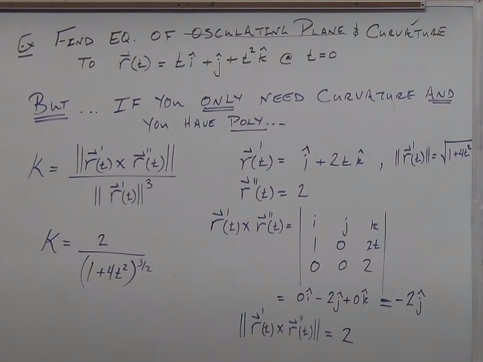 Ex FIND EQ. OF OSCULATING PLANE & CURVATURE
TO r⃗(t) = t î + ĵ + t² k̂ @ t=0
BUT... IF YOU ONLY NEED CURVATURE AND
YOU HAVE POLY...
K = ||r⃗'(t) × r⃗''(t)|| / ||r⃗'(t)||³
r⃗'(t) = î + 2t k̂ , ||r⃗'(t)|| = √1+4t²
r⃗''(t) = 2
r⃗'(t) × r⃗''(t) = | i j k |
| 1 0 2t |
| 0 0 2 |
K = 2 / (1+4t²)^3/2
= 0î - 2ĵ + 0k̂ = -2ĵ
||r⃗'(t) × r⃗''(t)|| = 2